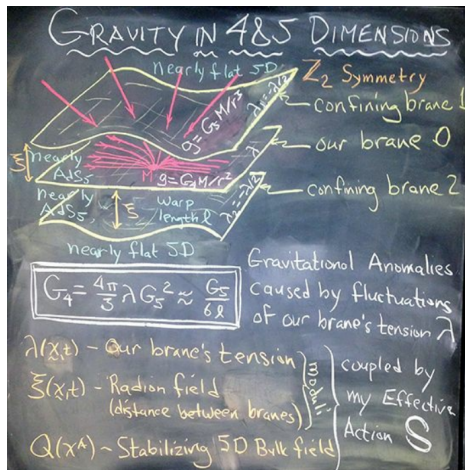 GRAVITY IN 4&5 DIMENSIONS
nearly flat 5D
Z₂ Symmetry
g=G₅M/r³
λ₁=-λ/2
confining brane 1
ξ
nearly AdS₅
M
g=G₄M/r²
λ
our brane 0
nearly AdS₅
ξ
warp length ℓ
λ₂=-λ/2
confining brane 2
nearly flat 5D
G₄ = 4π/3 λG₅² ≈ G₅/6ℓ
Gravitational Anomalies
caused by fluctuations
of our brane's tension λ
λ(x,t) - Our brane's tension
ξ(x,t) - Radion field
(distance between branes)
moduli
Q(xᴬ) - Stabilizing 5D Bulk field
coupled by
my Effective
Action S